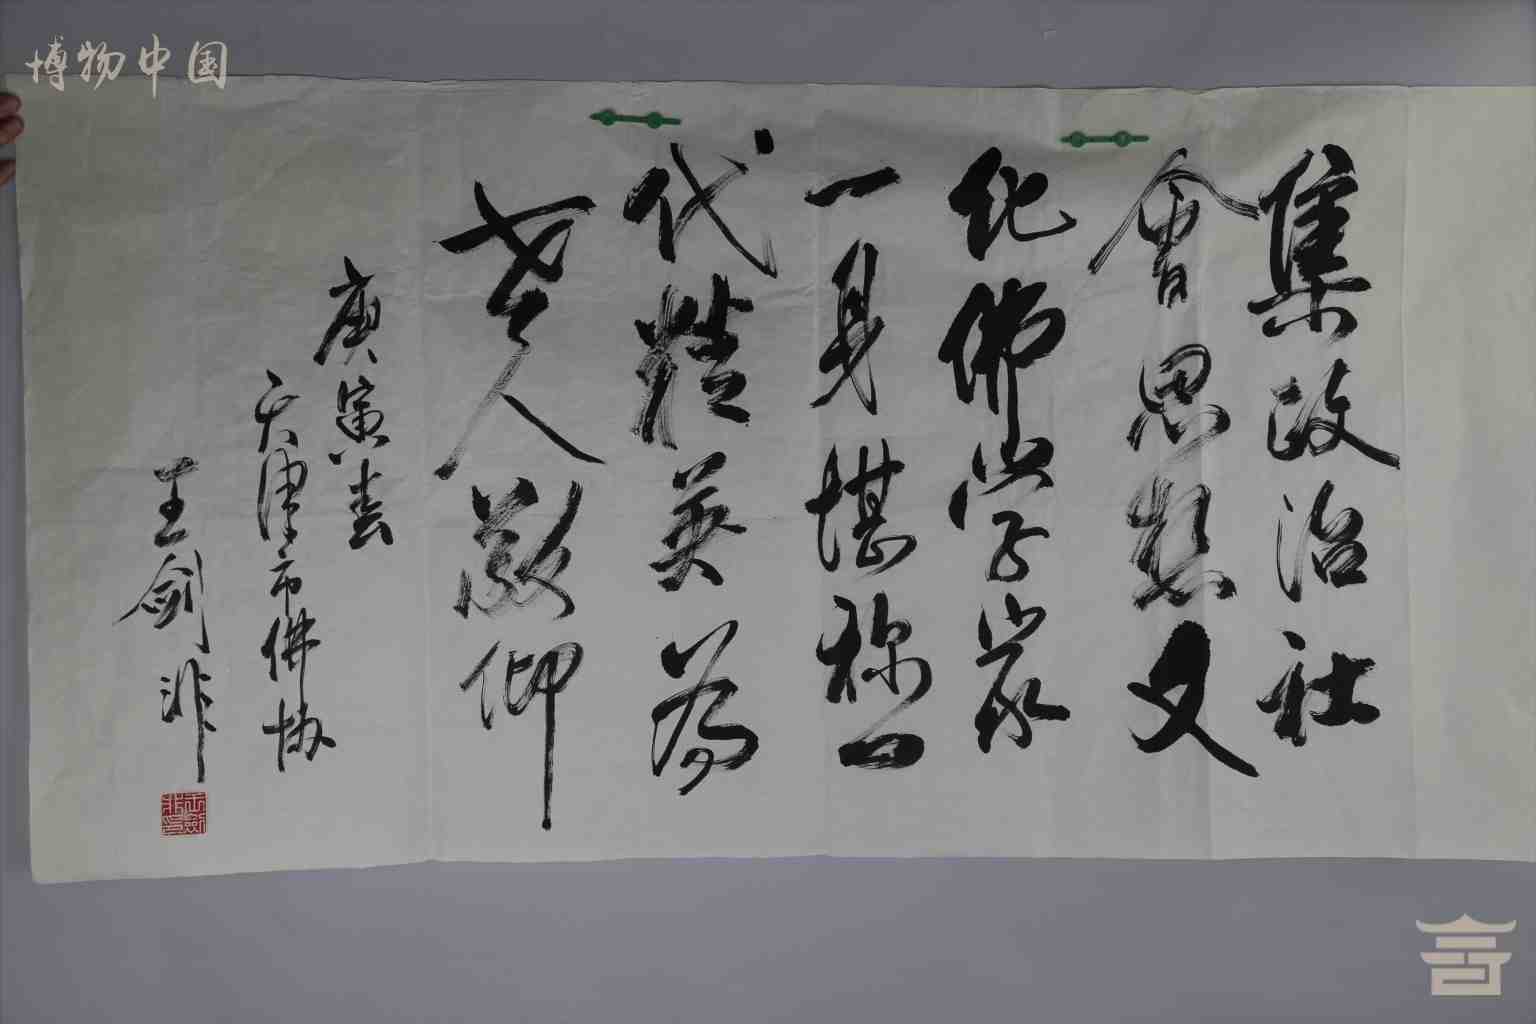 博物中国
集政治社
會思想文
化佛学家
一身堪称一
代精英为
世人敬仰
庚寅春
天津市佛协
王剑非